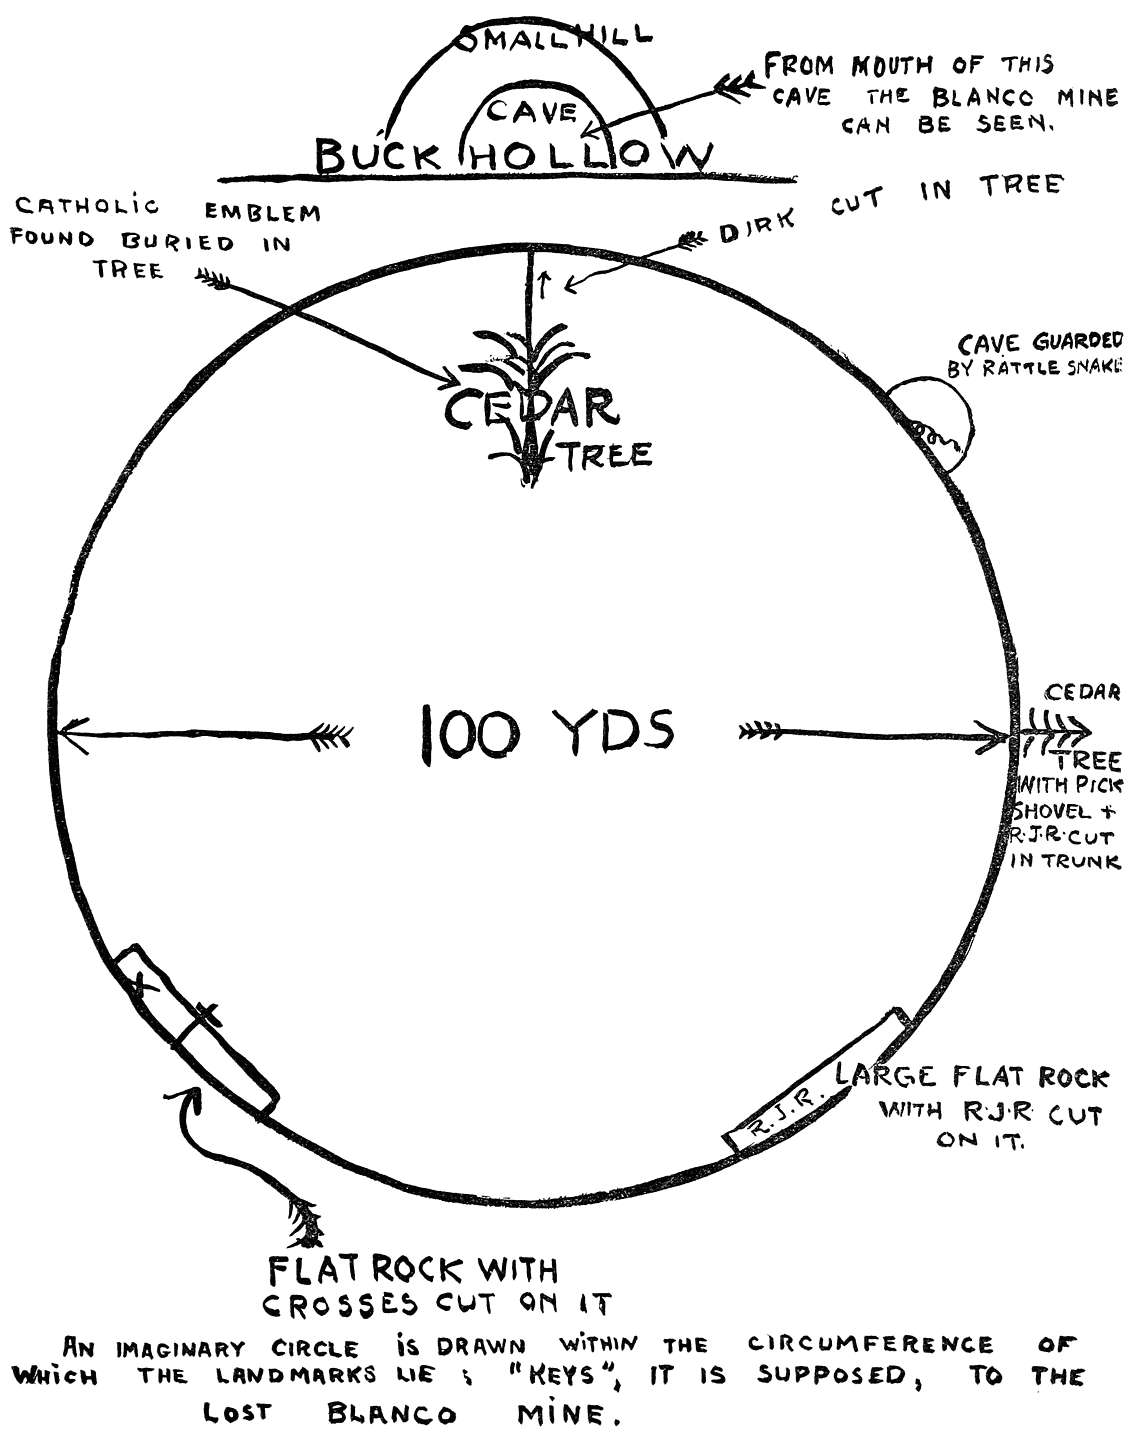 SMALL HILL
CAVE
BUCK HOLLOW
FROM MOUTH OF THIS
CAVE THE BLANCO MINE
CAN BE SEEN.
CATHOLIC EMBLEM
FOUND BURIED IN
TREE
DIRK CUT IN TREE
CAVE GUARDED
BY RATTLE SNAKE
CEDAR
TREE
100 YDS
CEDAR
TREE
WITH PICK
SHOVEL +
R.J.R. CUT
IN TRUNK
R.J.R.
LARGE FLAT ROCK
WITH R.J.R CUT
ON IT.
FLAT ROCK WITH
CROSSES CUT ON IT
AN IMAGINARY CIRCLE IS DRAWN WITHIN THE CIRCUMFERENCE OF
WHICH THE LANDMARKS LIE ; "KEYS", IT IS SUPPOSED, TO THE
LOST BLANCO MINE.